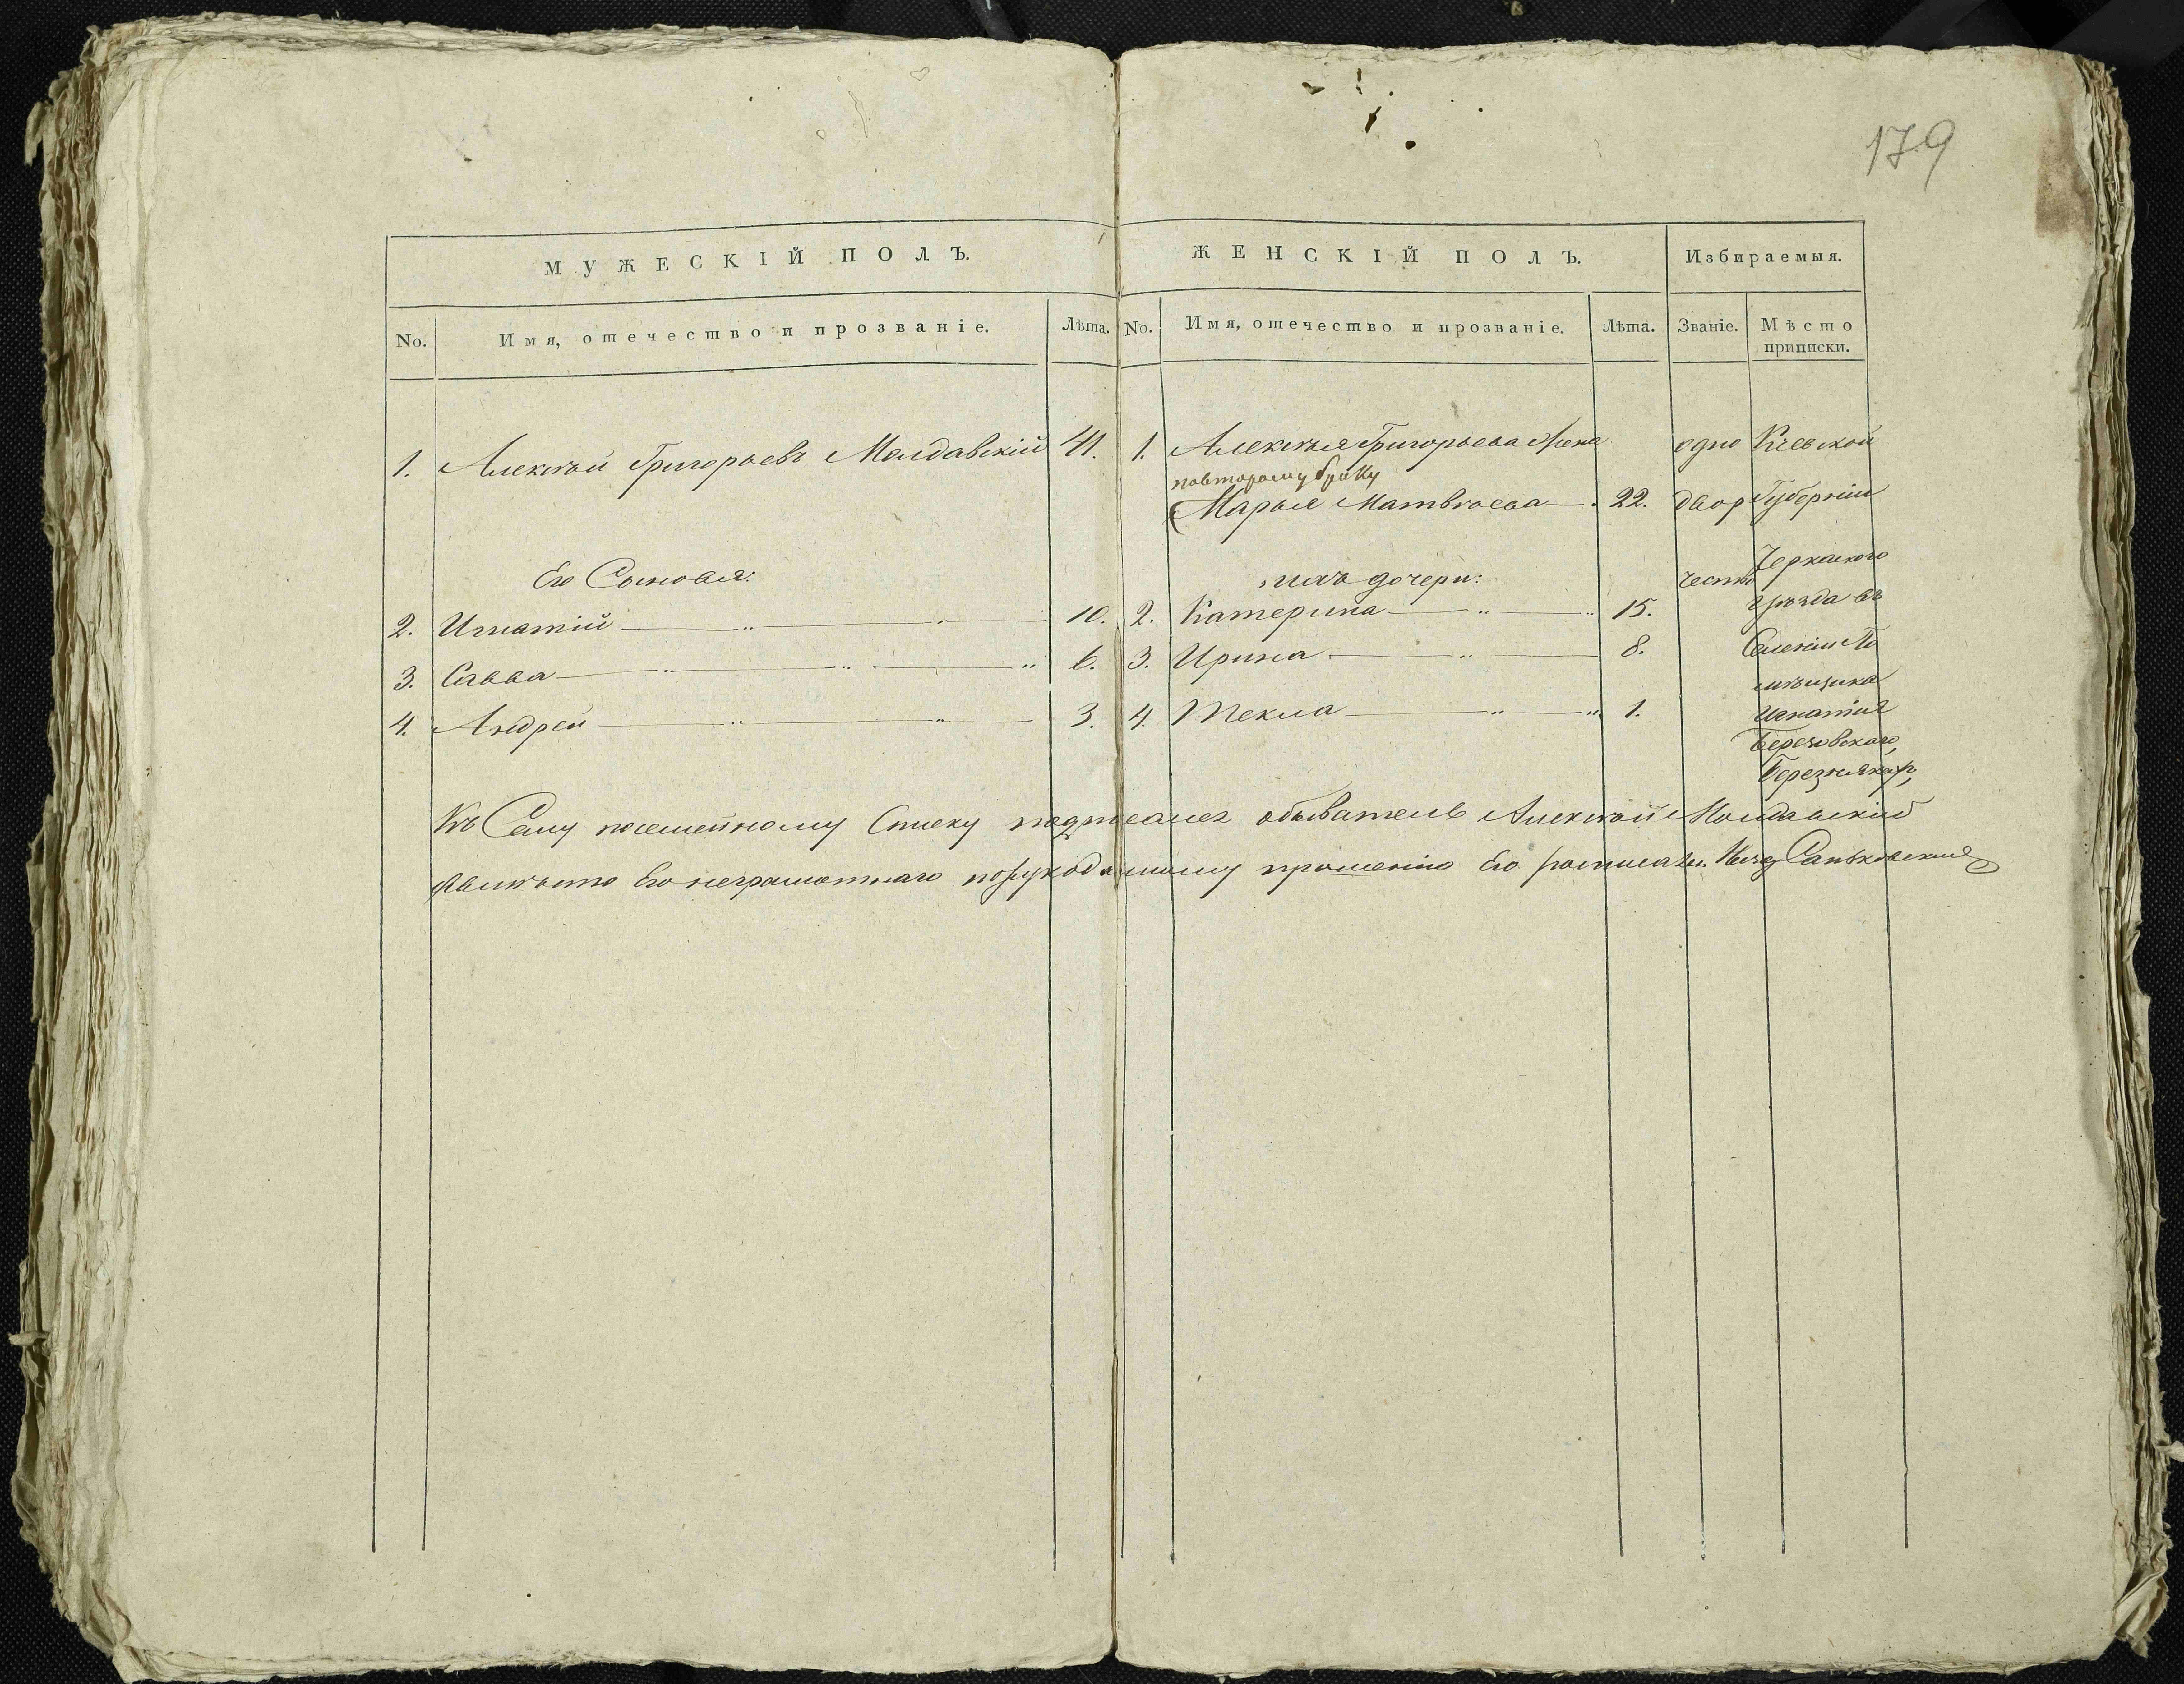 179
МУЖЕСКІЙ ПОЛЪ.
ЖЕНСКІЙ ПОЛЪ.
Избираемыя.
No.
Имя, отечество и прозваніе.
Лѣта.
No.
Имя, отечество и прозваніе.
Лѣта.
Званіе.
Мѣсто
приписки.
1. Алексѣй Григорьевъ Молдавскій 41.
Его Сыновья:
2. Игнатій 10.
3. Савва 6.
4. Андрей 3.
1. Алексѣя Григорьева Жена
повторому браку
Марья Матвѣева 22.
ихъ дочери:
2. Катерина 15.
3. Ирина 8.
4. Текла 1.
одно
двор
чество
Кіевской
Губерніи
Черкаского
уѣзда въ
Селеніи По
мѣщика
Игнатія
Березовскаго,
Къ Сему посемейному Списку подписался обыватель Алексѣй Молдавскій
Авмѣсто Его неграмотнаго порукоданному прошенію Его росписался